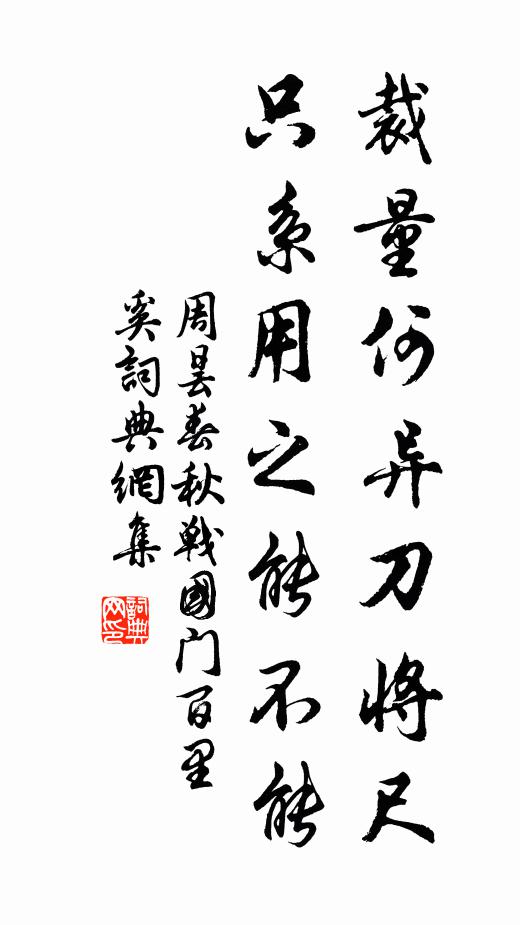 裁量何异刀將尺
只系用之能不能
周昙春秋戰國门百里
奚詞典網集
詞典
网印